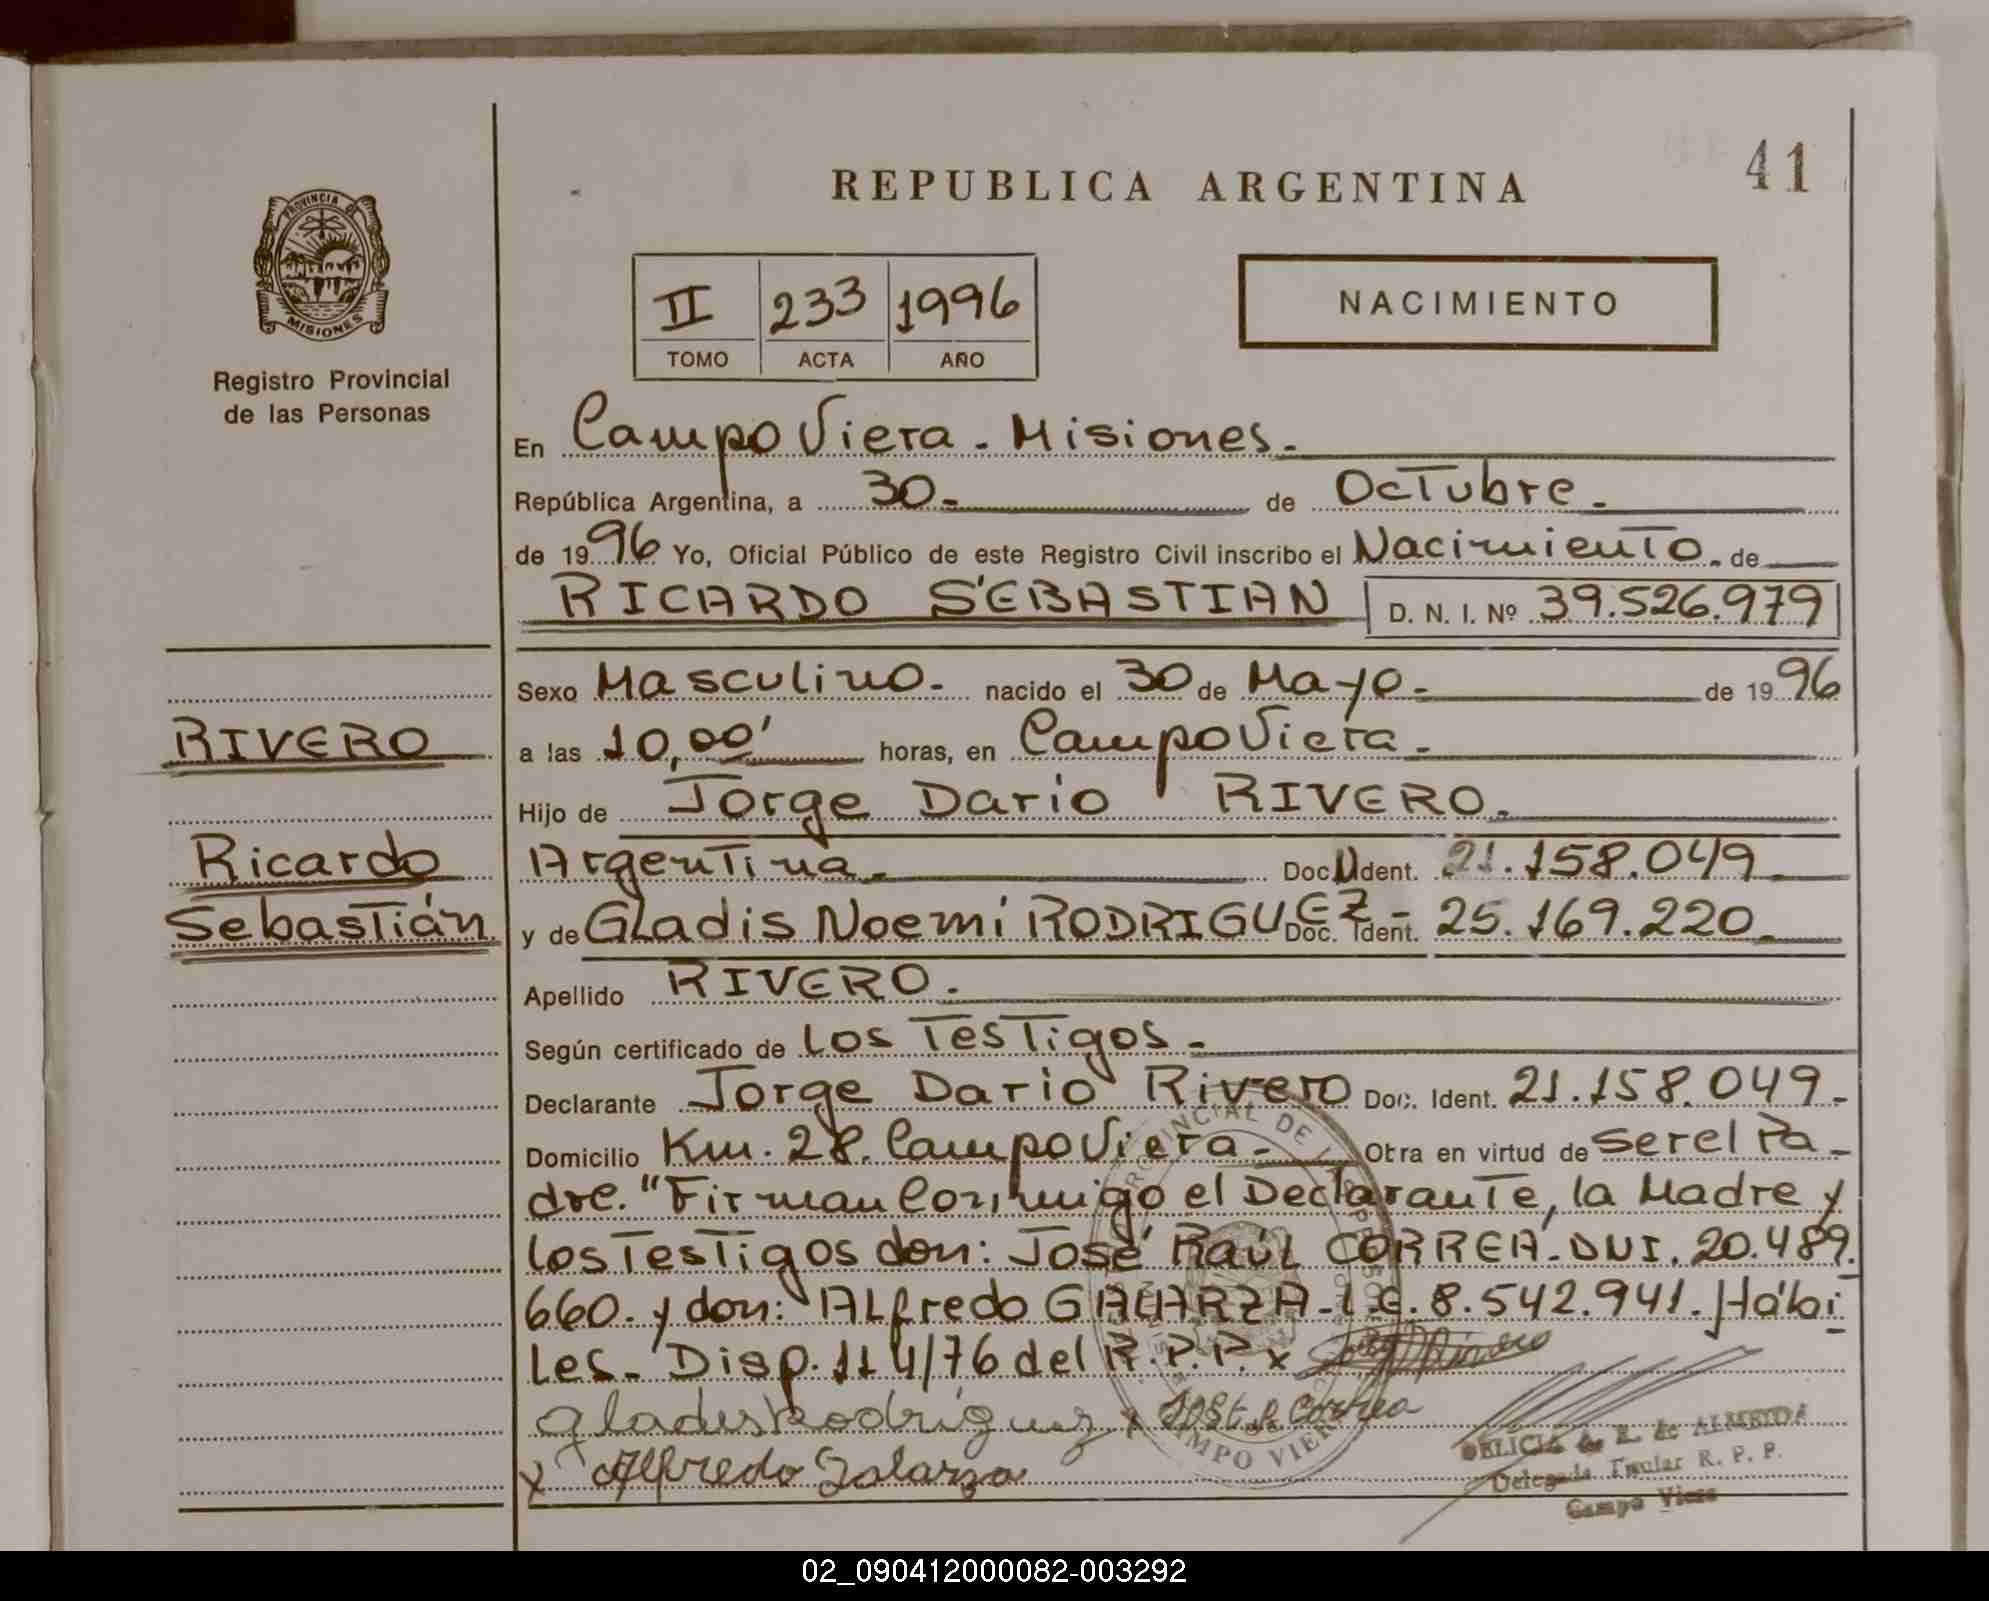 REPUBLICA ARGENTINA
41
PROVINCIA DE
MISIONES
Registro Provincial
de las Personas
II 233 1996
TOMO ACTA AÑO
NACIMIENTO
En Campo Viera - Misiones.
República Argentina, a 30 - de Octubre.
de 1996 Yo, Oficial Público de este Registro Civil inscribo el Nacimiento. de
RICARDO SEBASTIAN D. N. I. Nº 39.526.979
Sexo Masculino - nacido el 30 de Mayo - de 1996
RIVERO
a las 10,00' horas, en Campo Viera.
Hijo de Jorge Dario RIVERO.
Ricardo
Argentina. Doc. Ident. 21.158.049
Sebastián
y de Gladis Noemí RODRIGUEZ - Doc. Ident. 25.169.220
Apellido RIVERO.
Según certificado de los Testigos -
Declarante Jorge Dario Rivero Doc. Ident. 21.158.049 -
Domicilio Km. 28. Campo Viera - Obra en virtud de ser el Pa-
dre. "Firman Conmigo el Declarante, la Madre y
los Testigos don: José Raúl CORREA - DNI. 20.489.
660. y don: Alfredo GALARZA - L.E. 8.542.941. Hábi
les - Disp. 114/76 del R.P.P. x
Gladis Rodriguez x José R Correa
x Alfredo Galarza
CAMPO VIERA
DELICIA de ALMEYDA
Delegada Titular R. P. P.
Campo Viera
02_090412000082-003292